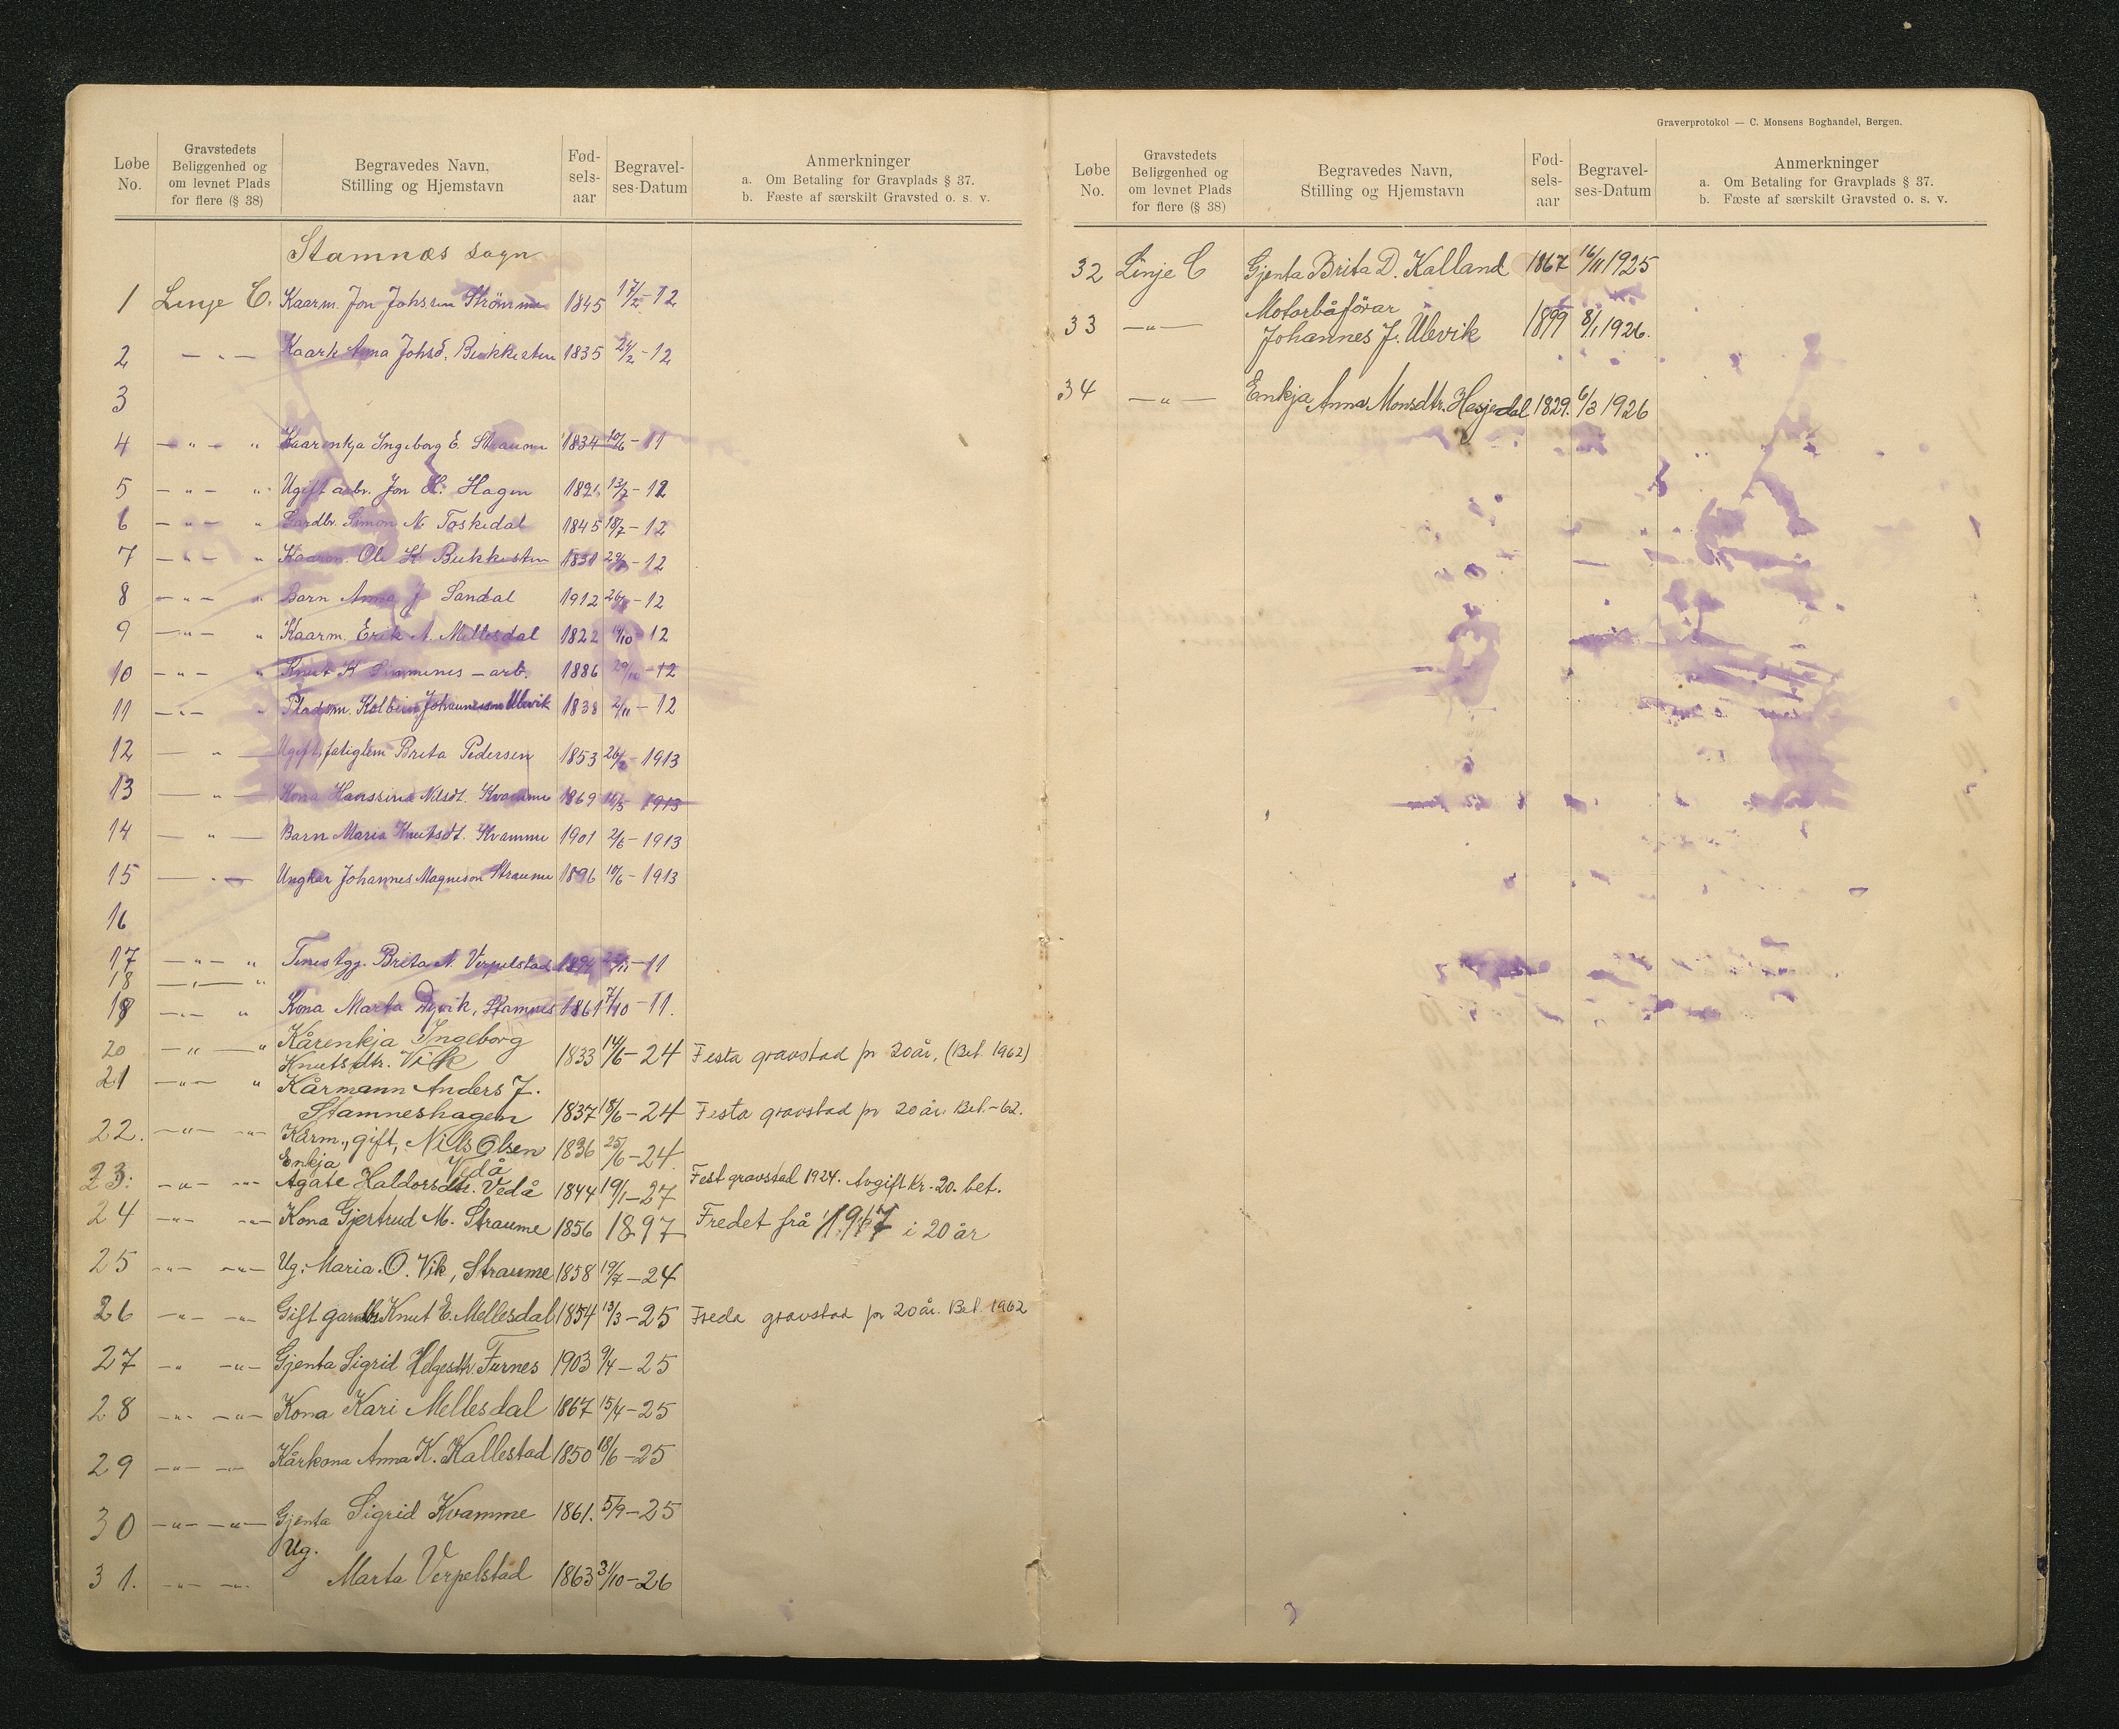 Løbe No. Gravstedets Beliggenhed og om levnet Plads for flere (§ 38) Begravedes Navn, Stilling og Hjemstavn Fød-sels-aar Begravel-ses-Datum Anmerkninger
a. Om Betaling for Gravplads § 37.
b. Fæste af særskilt Gravsted o. s. v.
Stamnæs sogn
1 Linje C. Kaarm. Jon Johssen Strömme 1845 17/2-12
2 — „ — Kaark Anna Johsd. Bukkesten 1835 24/2-12
3
4 — „ — „ Kaarenkja Ingeborg E. Straume 1834 10/6-11
5 — „ — „ Ugift arbr. Jon K. Hagen 1821 13/7-12
6 — „ — „ Gardbr. Simon N. Toskedal 1845 18/7-12
7 — „ — „ Kaarm. Ole K. Bukkesten 1831 29/7-12
8 — „ — „ Barn Anna J Sandal 1912 26/8-12
9 — „ — „ Kaarm. Erik A. Mellesdal 1822 14/10-12
10 — „ — „ Knut K Stamnes — arb. 1886 29/10-12
11 — „ — „ Pladsm. Kolbein Johannesson Ulevik 1838 2/11-12
12 — „ — Ugift fatiglem Brita Pedersen 1853 26/2-1913
13 — „ — Kona Hansina Nilsdt. Kvamme 1869 14/5-1913
14 — „ — Barn Maria Knutsdt. Kvamme 1901 2/6-1913
15 — „ — Ungkar Johannes Magneson Straume 1896 10/6-1913
16
17 — „ — „ Tenestgj. Brita N. Verpelstad 1894 22/11-11
18 — „ — „
19 — „ — „ Kona Marta Dyvik, Stamnes 1861 7/10-11.
20 — „ — „ Kårenkja Ingeborg
Knutsdtr. Vik 1833 14/6-24 Festa gravstad pr 20år, (Bet. 1962)
21 — „ — „ Kårmann Anders J.
Stamneshagen 1837 18/6-24 Festa gravstad pr 20år. Bet.-62.
22. — „ — — „ — Kårm., gift, Nils Olsen 1836 25/6-24.
Vedå
Enkja
23: — „ — — „ — Agate Haldorsdtr. Vedå 1844 19/1-27 Fest gravstad 1924. Avgift kr. 20. bet.
24 — „ — — „ — Kona Gjertrud M. Straume 1856 1897 Fredet frå 1917 i 20 år
25 — „ — — „ — Ug: Maria. O. Vik, Straume 1858 19/7-24
26 — „ — — „ — Gift gardbr Knut E. Mellesdal 1854 13/3-25 Freda gravstad pr 20år. Bet. 1962
27 — „ — „ — Gjenta Sigrid Helgesdtr. Furnes 1903 9/4-25
28 — „ — — „ — Kona Kari Mellesdal 1867 15/4-25
29 — „ — — „ — Kårkona Anna K. Kallestad 1850 18/6-25
30 — „ — — „ — Gjenta Sigrid Kvamme 1861. 5/9-25
Ug.
31. — „ — — „ — Marta Verpelstad 1863 31/10-26
Graverprotokol — C. Monsens Boghandel, Bergen.
Løbe No. Gravstedets Beliggenhed og om levnet Plads for flere (§ 38) Begravedes Navn, Stilling og Hjemstavn Fød-sels-aar Begravel-ses-Datum Anmerkninger
a. Om Betaling for Gravplads § 37.
b. Fæste af særskilt Gravsted o. s. v.
32 Linje C Gjenta Brita D. Kalland 1867 16/11 1925
Motorbåförar
33 — „ — Johannes J. Ulevik 1899 8/1 1926.
34 — „ — Enkja Anna Monsdtr. Hesjedal 1829. 6/3 1926